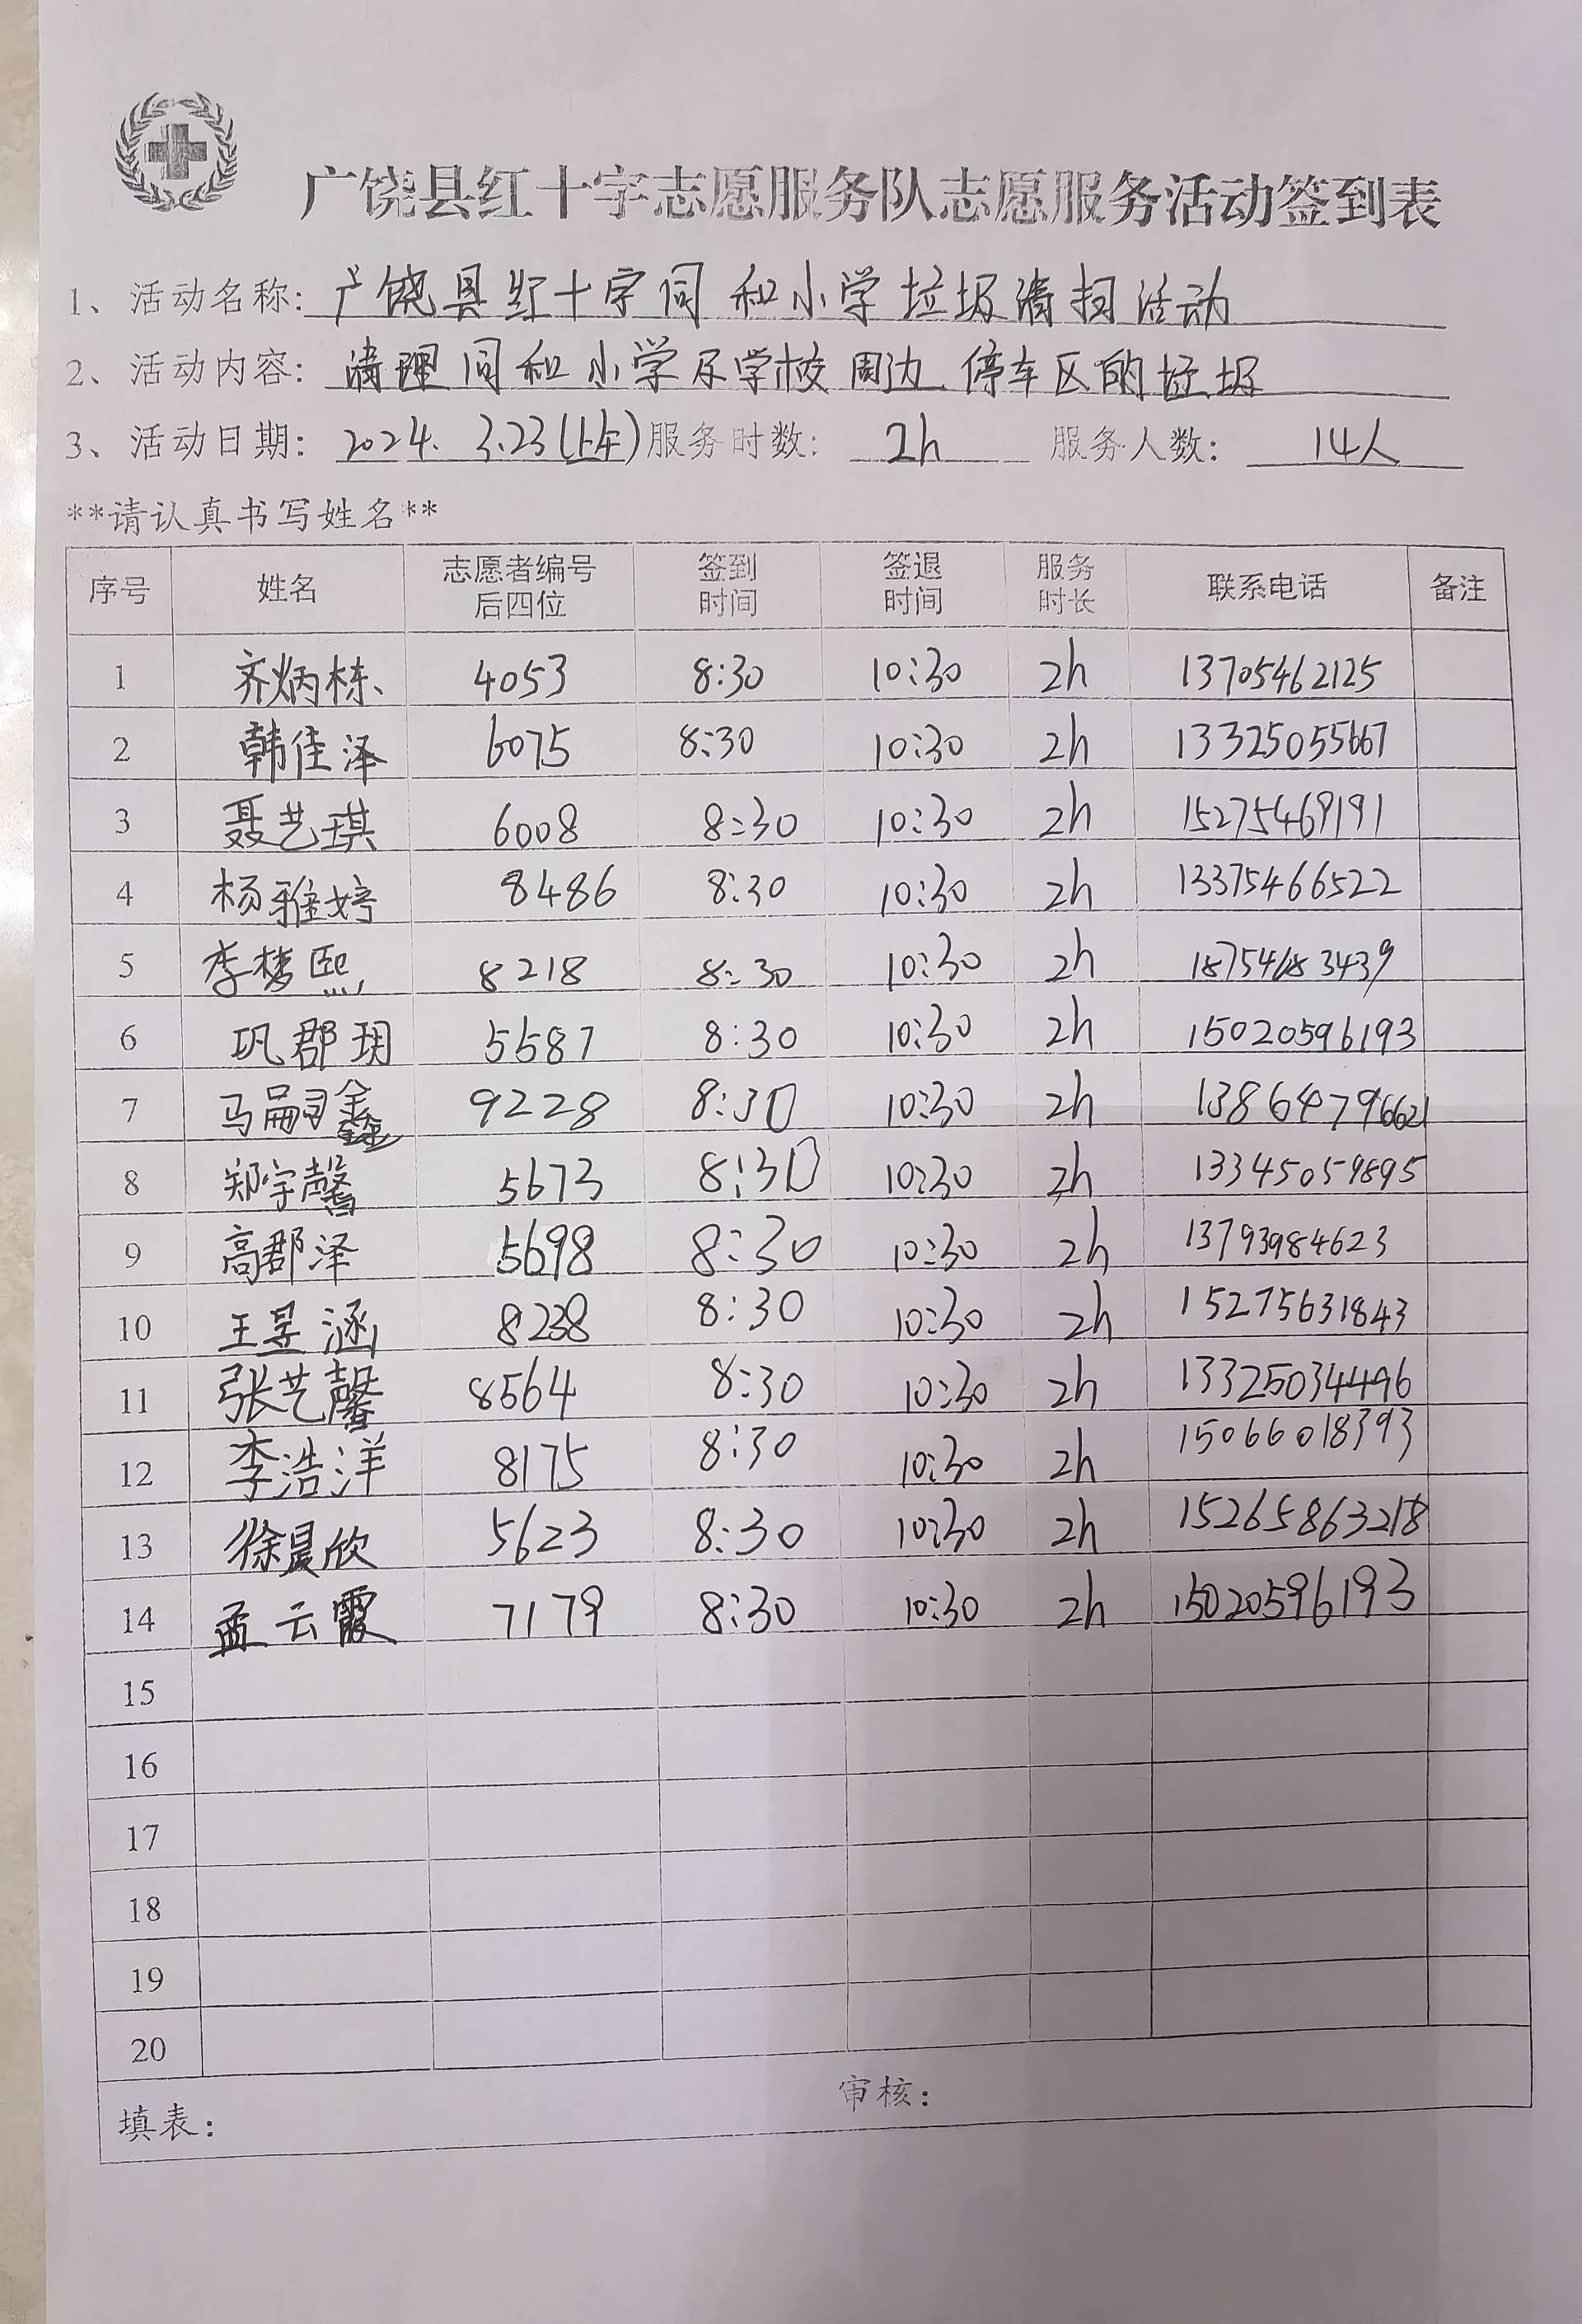 广饶县红十字志愿服务队志愿服务活动签到表
1、活动名称: 广饶县红十字同和小学垃圾清扫活动
2、活动内容: 清理同和小学及学校周边停车区的垃圾
3、活动日期: 2024. 3.23(上午) 服务时数: 2h 服务人数: 14人
**请认真书写姓名**
序号 姓名 志愿者编号后四位 签到时间 签退时间 服务时长 联系电话 备注
1 齐炳栋 4053 8:30 10:30 2h 13705462125
2 韩佳泽 6075 8:30 10:30 2h 13325055667
3 聂艺琪 6008 8:30 10:30 2h 15275469191
4 杨雅婷 8486 8:30 10:30 2h 13375466522
5 李梦熙 8218 8:30 10:30 2h 18754683439
6 巩郡玥 5587 8:30 10:30 2h 15020596193
7 马嗣鑫 9228 8:30 10:30 2h 13864796621
8 郑宇馨 5673 8:30 10:30 2h 13345059895
9 高郡泽 5698 8:30 10:30 2h 13793984623
10 王昱涵 8238 8:30 10:30 2h 15275631843
11 张艺馨 8564 8:30 10:30 2h 13325034496
12 李浩洋 8175 8:30 10:30 2h 15066018393
13 徐晨欣 5623 8:30 10:30 2h 15265863218
14 孟云霞 7179 8:30 10:30 2h 15020596193
15
16
17
18
19
20
填表: 审核: